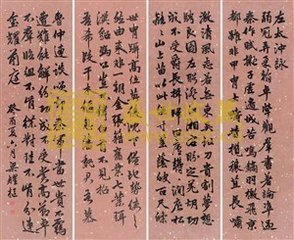 左太沖詠
弱冠弄柔翰卓犖觀羣書著論準過
秦作賦擬子虛邊城苦鳴鏑羽檄飛京
都雖非甲冑士疇昔覽穰苴長嘯
激清風志若無東吳鉛刀貴割夢想
騁良圖左眄澄江湘右盼定羌胡功
成不受爵長揖歸田廬鬱鬱澗底松
離離山上苗以彼徑寸莖蔭此百尺條
世冑躡高位英俊沈下僚地勢使之
然由來非一朝金張藉舊業七葉珥
漢貂馮公豈不偉白首不見招
吾希段干木偃息藩魏君吾慕
魯仲連談笑却秦軍當世貴不羈
遭難能解紛功成恥受賞高節卓
不羣臨組不肯緤對珪不肯分連
璽燿前庭 癸酉夏六月吴